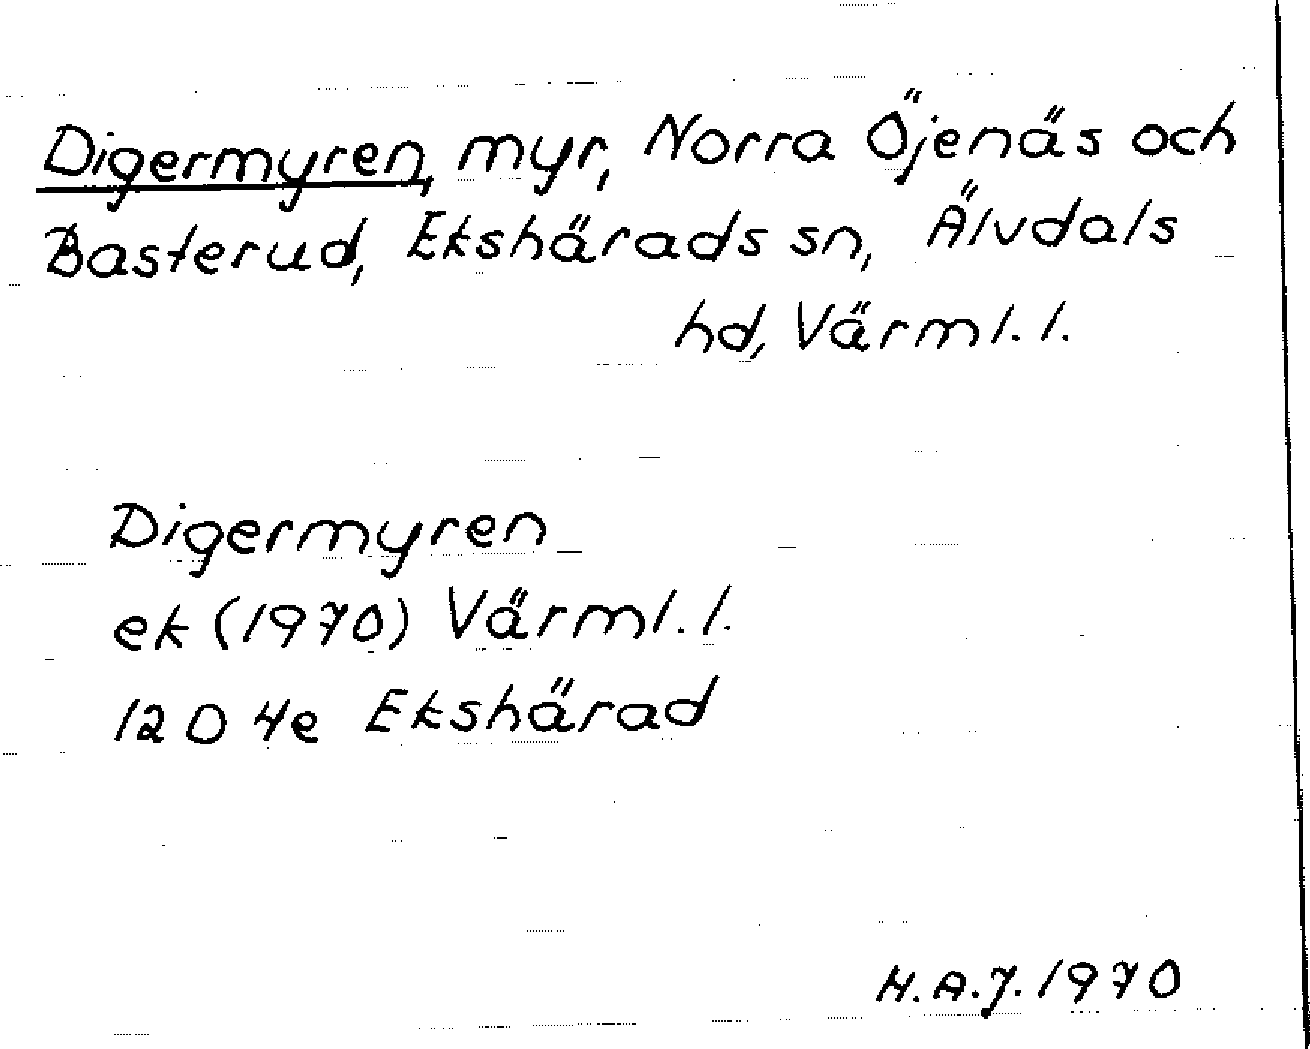 Digermyren, myr, Norra Öjenäs och
Basterud, Ekshärads sn, Älvdals
hd, Värml. l.
Digermyren
ek (1970) Värml. l.
12 D 4e Ekshärad
H.A.J. 1970